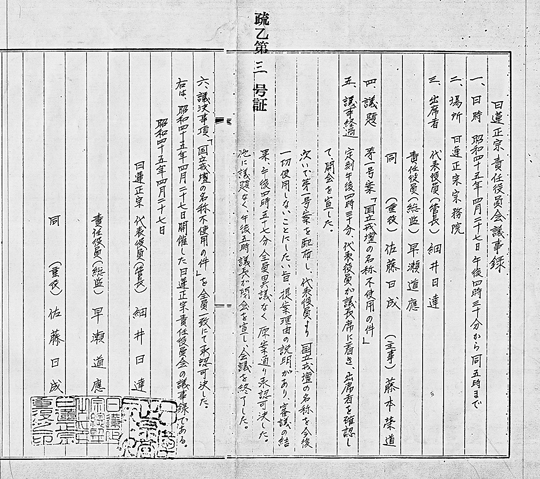 疏乙第三号証
日蓮正宗責任役員会議事録
一、日時 昭和四十五年四月二十七日 午後四時三十分から同五時まで
二、場所 日蓮正宗宗務院
三、出席者 代表役員(管長) 細井日達
責任役員(総監) 早瀬道應
同 (重役) 佐藤日成 (主事) 藤本栄道
四、議題 第一号案「国立戒壇の名称不使用の件」
五、議事経過 定刻午後四時三十分、代表役員が議長席に着き、出席者を確認し
て開会を宣した。
次いで第一号案を配布し、代表役員より「国立戒壇の名称を今後
一切使用しないことにしたい旨、提案理由の説明があり、審議の結
果、午後四時五十七分、全員異議なく原案通り承認可決した。
他に議題なく、午後五時議長が閉会を宣し、会議を終了した。
六、議決事項「国立戒壇の名称不使用の件」を全員一致にて承認可決した。
右は、昭和四十五年四月二十七日開催した日蓮正宗責任役員会の議事録である。
昭和四十五年四月二十七日
日蓮正宗 代表役員(管長) 細井日達
責任役員(総監) 早瀬道應
同 (重役) 佐藤日成